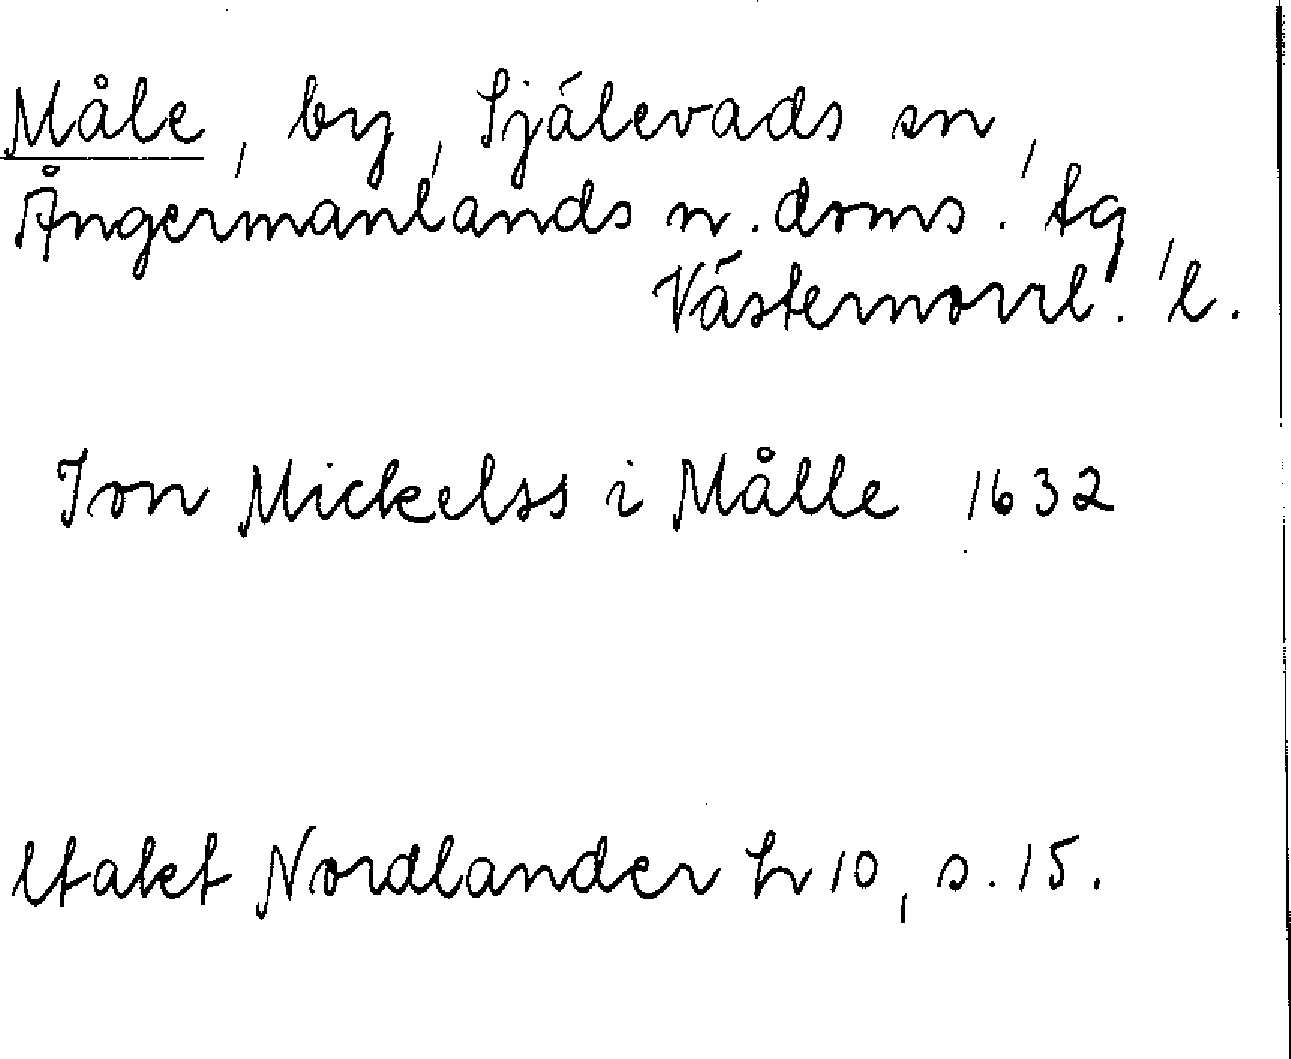 Måle, by, Själevads sn,
Ångermanlands n. doms. tg,
Västernorrl. l.
Jon Mickelss i Målle 1632
Utalet Nordlander h 10, s. 15.